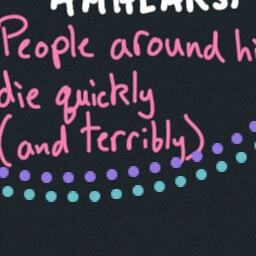 People around hi
die quickly
(and terribly)